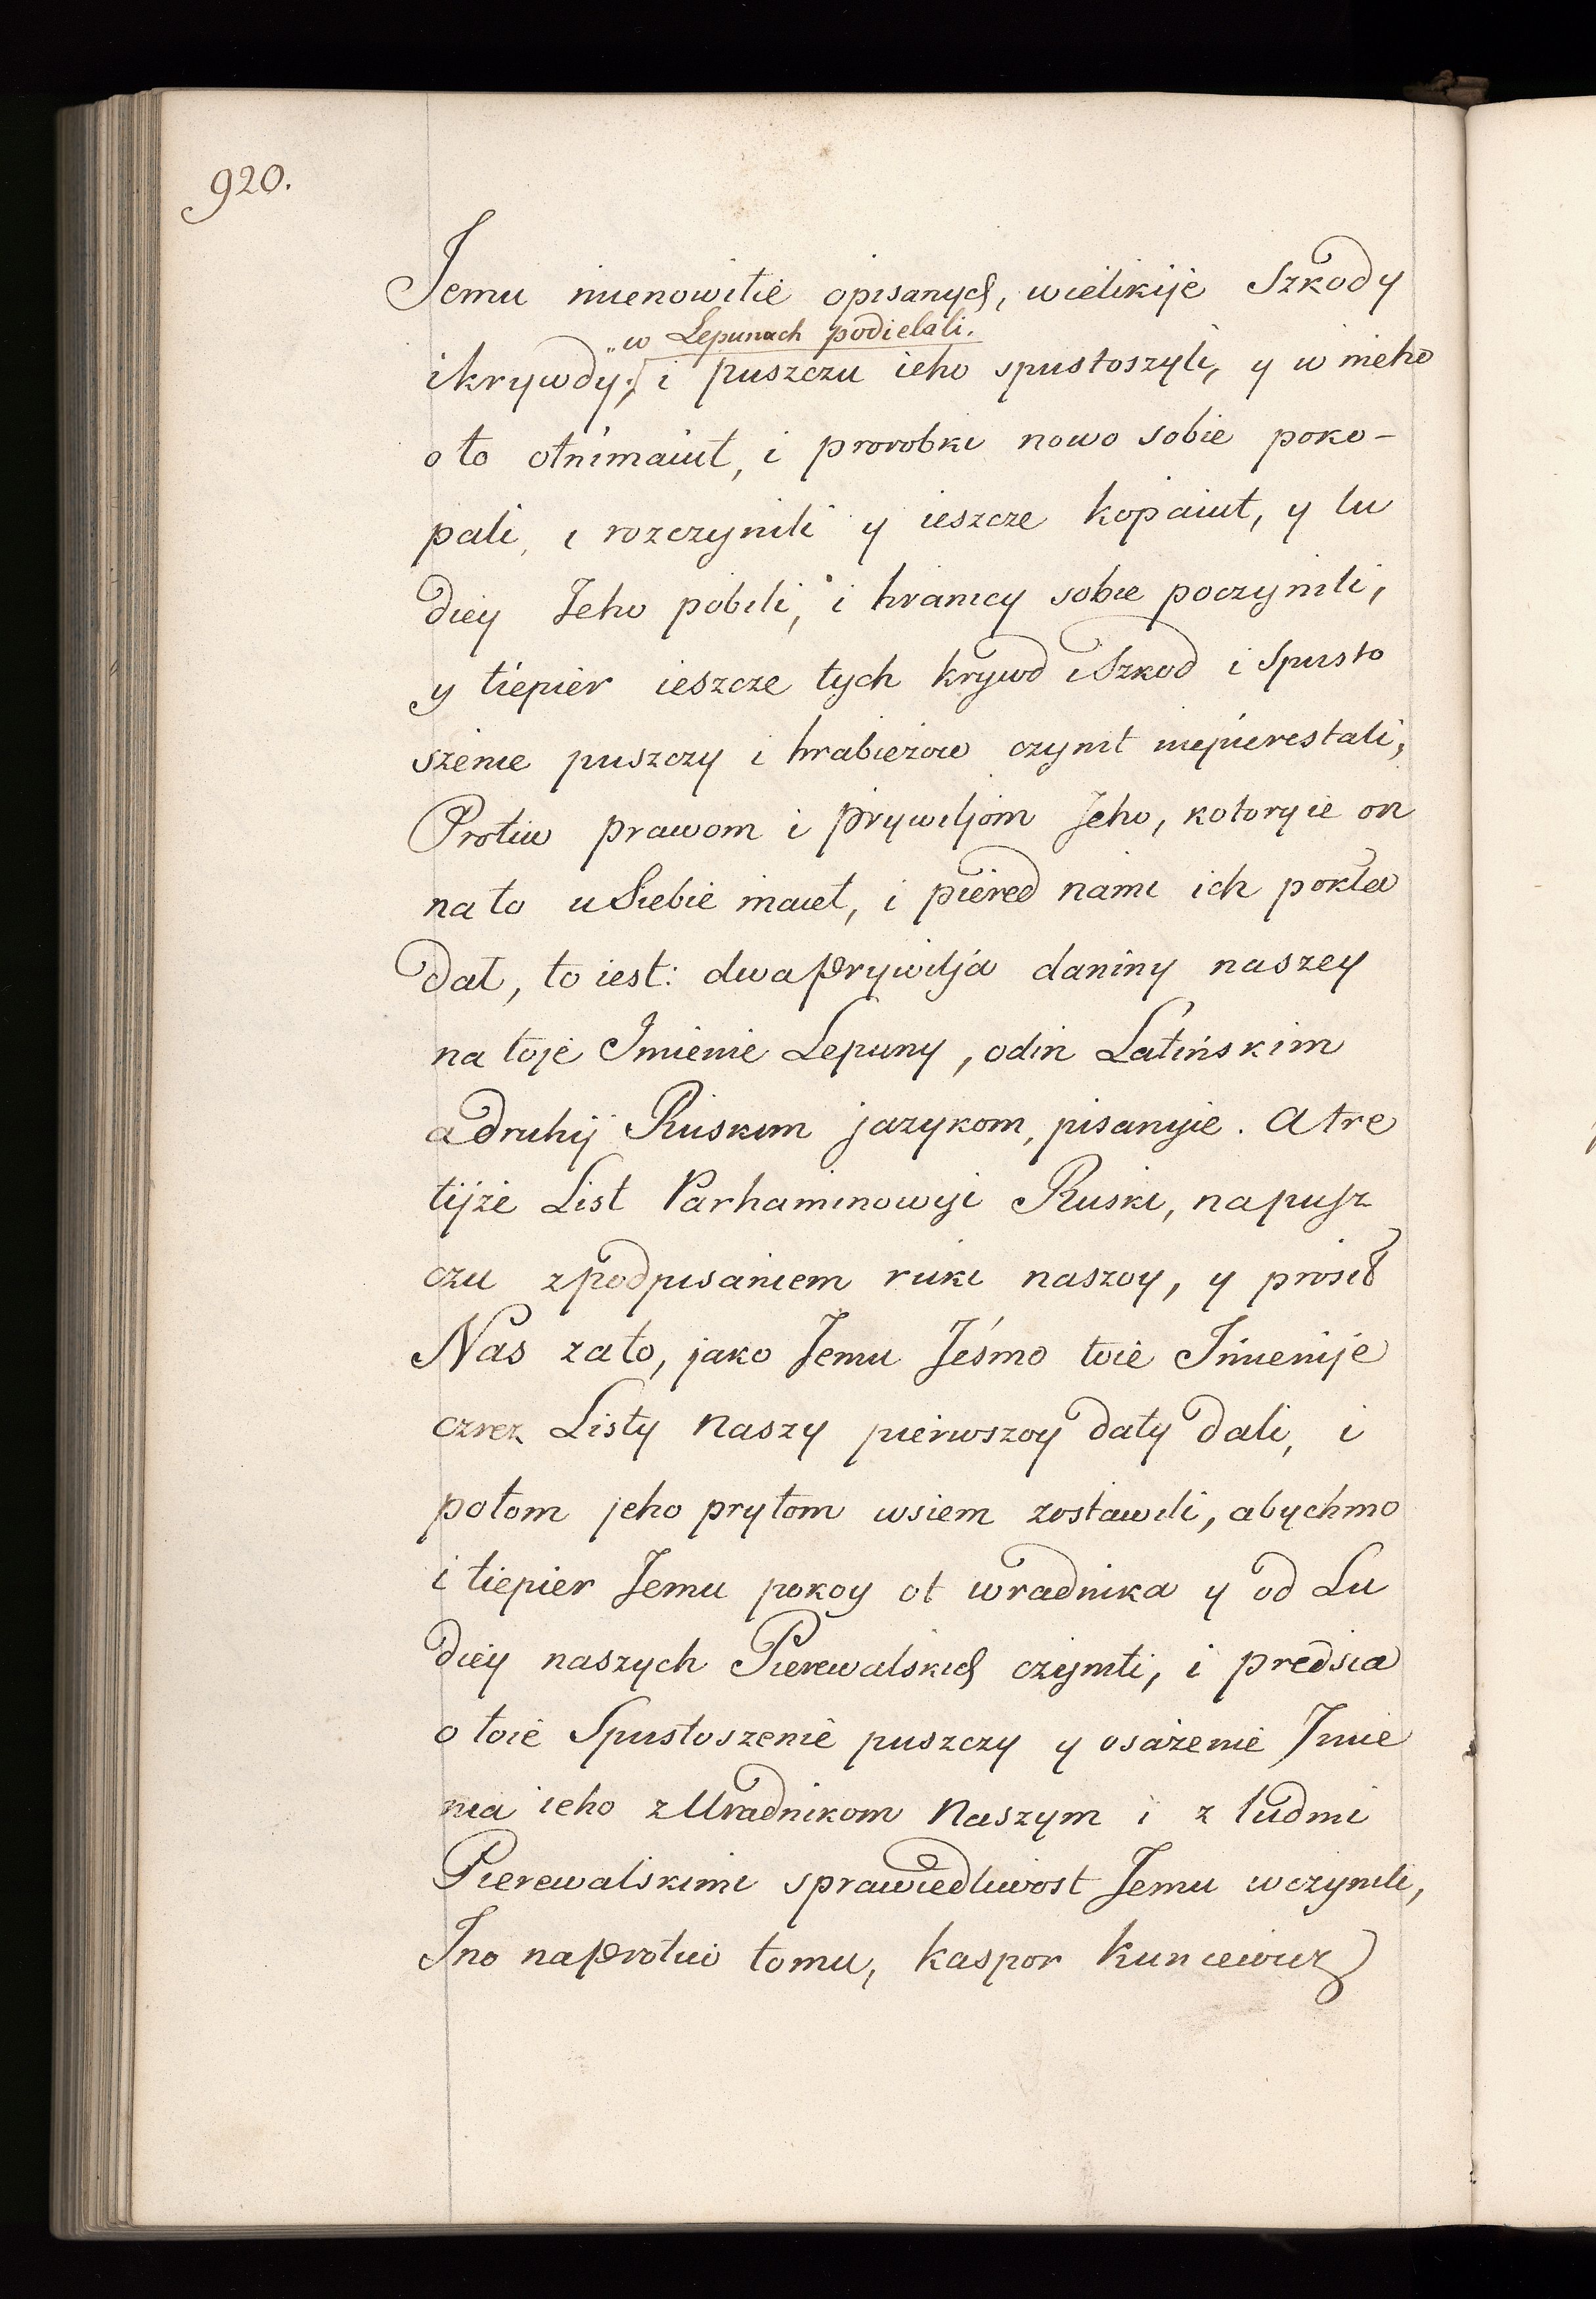 920.
Jemu mienowitie opisanych, wielikije Szkody
„w Lepunach podielali.
i krywdy; i puszczu ieho spustoszyli, y w nieho
o to otnimaiut, i prorobki nowo sobie poko-
pali, i rozczynili y ieszcze kopaiut, y lu
diey Jeho pobili, i hranicy sobie poczynili,
y tiepier ieszcze tych krywd i Szkod i Spusto
szenie puszczy i hrabieżow czynit niepierestali,
Protiw prawom i prywiljom Jeho, kotoryie on
na to u Siebie maiet, i piered nami ich pokła
dał, to iest: dwa prywilja daniny naszey
na toje Jmienie Lepuny, odin Łatińskim
a druhij Ruskim jazykom, pisanyie. A tre
tijże List Parhaminowyi Ruski, na pusz
czu z podpisaniem ruki naszoy, y prosił
Nas za to, jako Jemu Jeśmo toie Jmienije
czrez Listy naszy pierwszoy daty dali, i
potom jeho prytom wsiem zostawili, abychmo
i tiepier Jemu pokoy ot wradnika y od Lu
diey naszych Pierewalskich czynili, i predsia
o toie Spustoszenie puszczy y osażenie Jmie
nia ieho z Uradnikom Naszym i z ludmi
Pierewalskimi sprawiedliwost Jemu wczynili,
Jno naprotiw tomu, Kaspor Kuncewicz